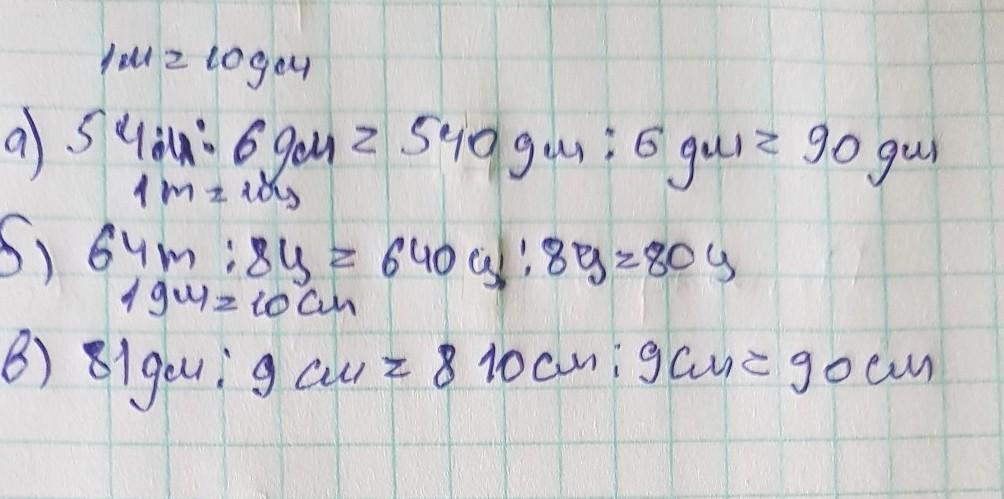 1м = 10дм
а) 54м : 6дм = 540дм : 6дм = 90дм
1т = 10ц
б) 64т : 8ц = 640ц : 8ц = 80ц
1дм = 10см
в) 81дм : 9см = 810см : 9см = 90см